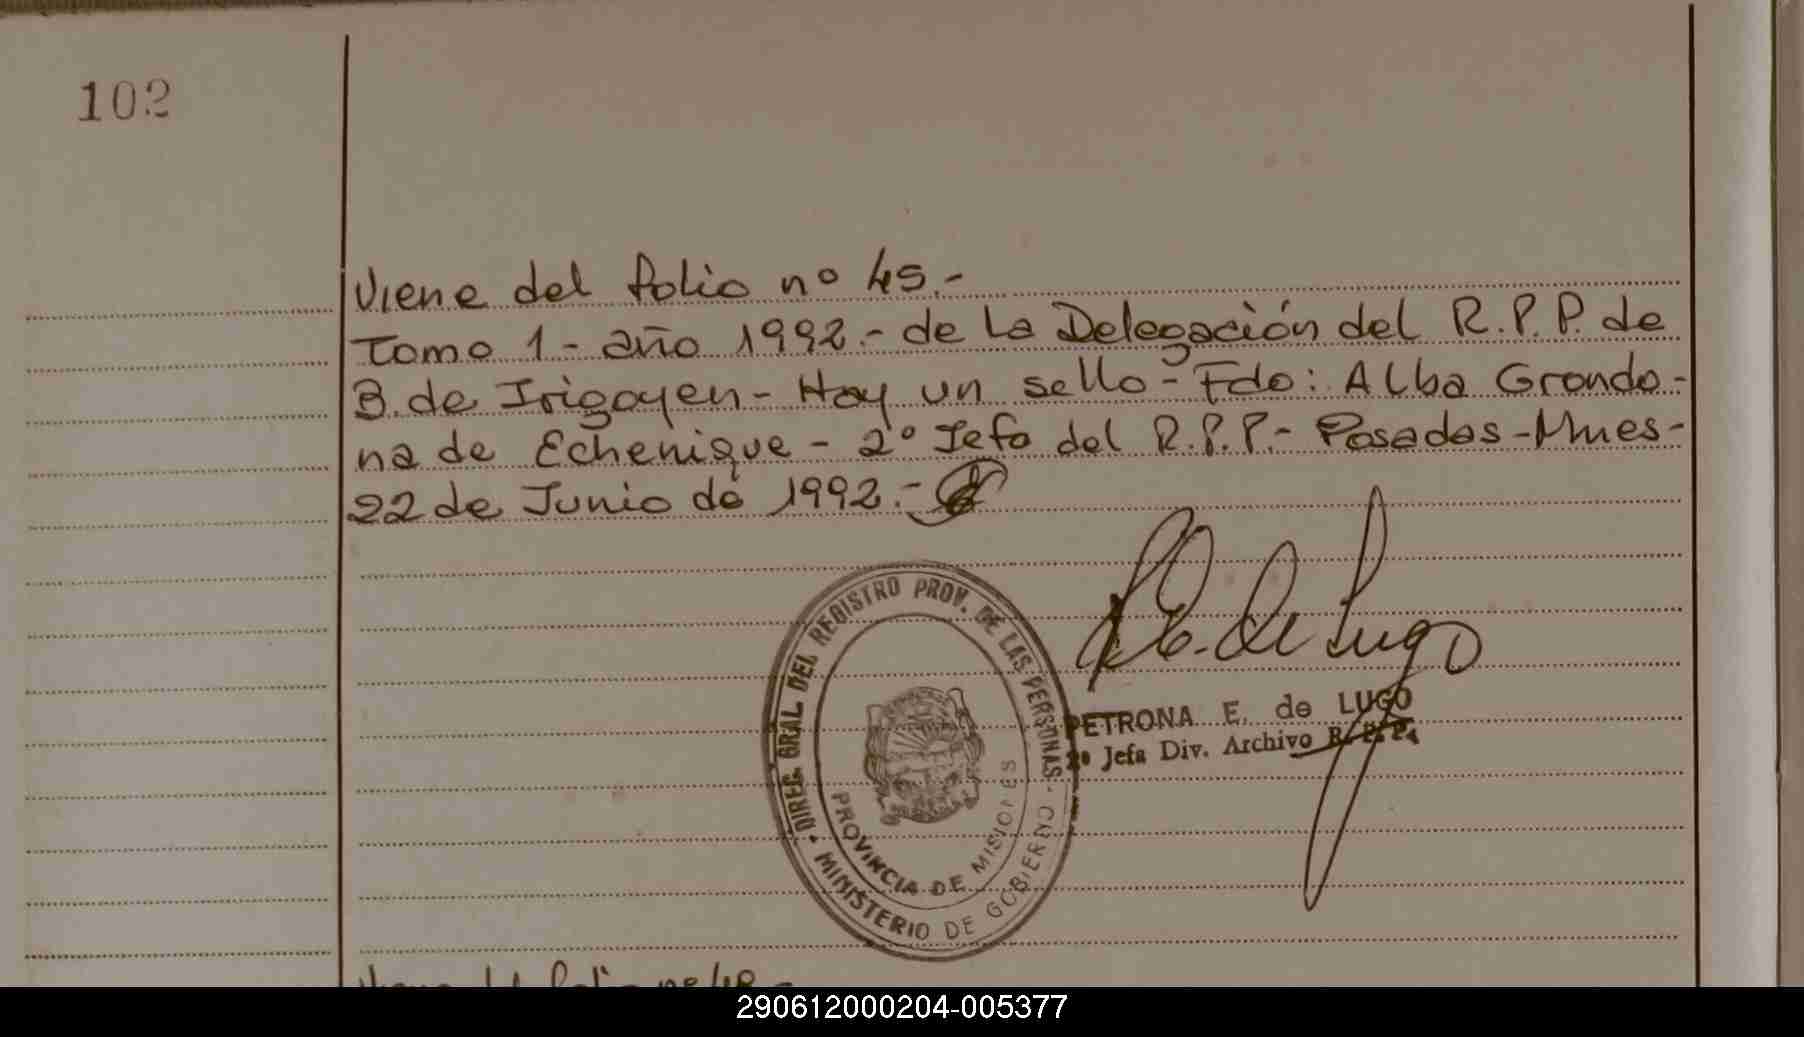 102
Viene del folio nº 45.-
Tomo 1 - año 1992.- de La Delegación del R.P.P. de
B. de Irigoyen - Hay un sello - Fdo: Alba Grondo-
na de Echenique - 2º Jefa del R.P.P.- Posadas - Mnes-
22 de Junio de 1992.-
E. de Lugo
DIREC. GRAL DEL REGISTRO PROV. DE LAS PERSONAS
MINISTERIO DE GOBIERNO
PROVINCIA DE MISIONES
PETRONA E. de LUGO
2º Jefa Div. Archivo R. P. P.
290612000204-005377